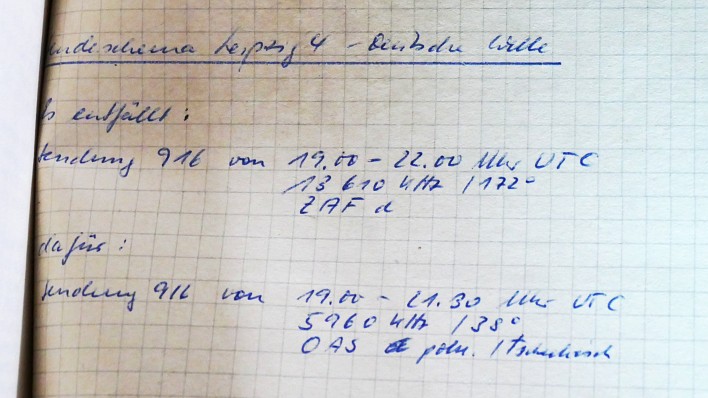 Sendeschema Leipzig 4 - Deutsche Welle
Es entfällt:
Sendung 916 von 19.00 - 22.00 Uhr UTC
13 610 kHz / 172°
ZAF d
dafür:
Sendung 916 von 19.00 - 21.30 Uhr UTC
5960 kHz / 38°
OAS poln. / tschechisch